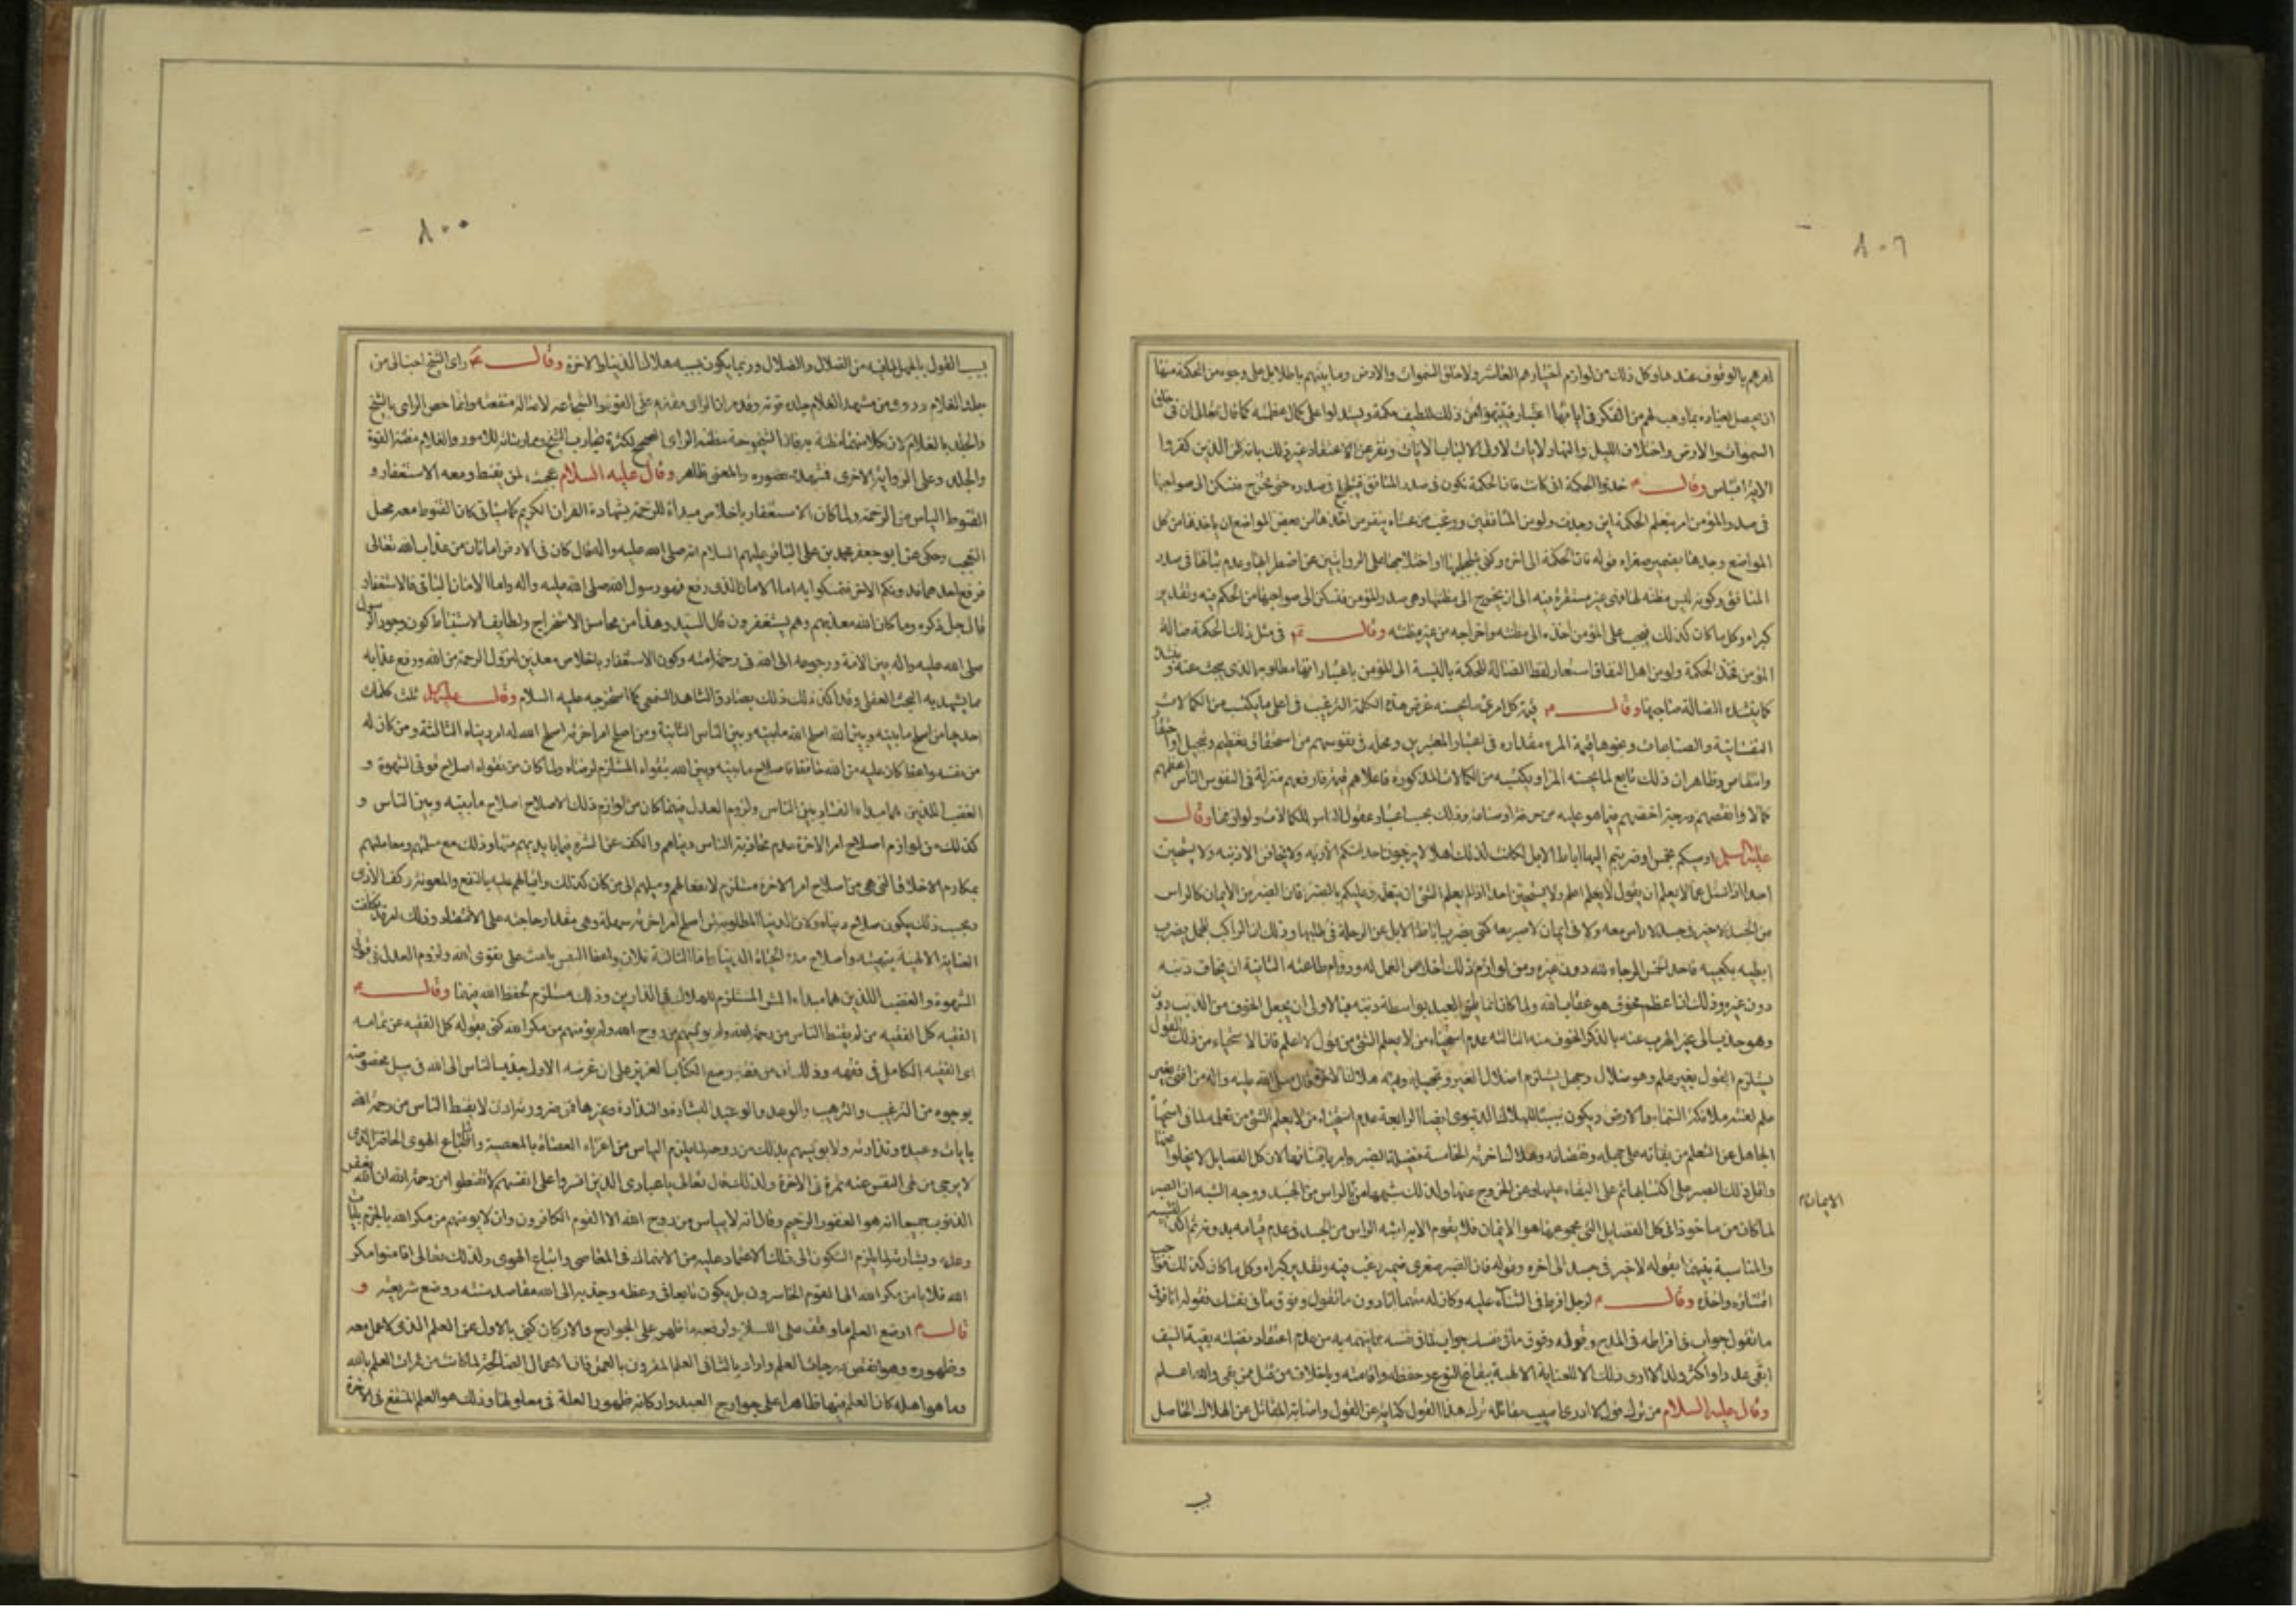 ٨٠٦
امرهم بالوقوف عندها وكل ذلك من لوازم اختيارهم العاشر ولا خلق السموات والارض وما بينهم باطلا بل على وجوه من الحكمة منها
السموات والارض واختلاف الليل والنهار لايات لاولى الالباب الايات ونفر عن الاعتقاد غير ذلك بانه ظن الذين كفروا
الاية اقتباس وقال م خذوا الحكمة انى كانت فان الحكمة تكون فى صدر المنافق فتلجلج فى صدره حتى تخرج فتسكن الى صواحبها
فى صدر المؤمن امر بتعلم الحكمة اين وجدت ولو من المنافقين ورغب من عساه ينفر من اخذها من بعض المواضع ان ياخذها من كل
المواضع وجدها بضمير صغراه قوله فان الحكمة الى اخره وكنى بتلجلجها او اختلاجها على الروايتين عن اضطرابها وعدم ثباتها فى صدر
المنافق وكونه ليس مظنة لها فهى غير مستقرة فيه الى ان تخرج الى مظنتها وهى صدر المؤمن فتسكن الى صواحبها من الحكم فيه وتقدير
كبراه وكل ما كان كذلك فيجب على المؤمن اخذه الى مظنته واخراجه من غير مظنته وقال م فى مثل ذلك الحكمة ضالة
المؤمن فخذ الحكمة ولو من اهل النفاق استعار لفظ الضالة للحكمة بالنسبة الى المؤمن باعتبار انها مطلوبه الذى يبحث عنه و ينشده
كما ينشد الضالة صاحبها وقال م قيمة كل امرئ ما يحسنه غرض هذه الكلمة الترغيب فى اعلى ما يكتسب من الكمالات
النفسانية والصناعات ونحوها وقيمة المرء مقداره فى اعتبار المعتبرين ومحله فى نفوسهم من استحقاق تعظيم وتبجيل او احتقار
وانتقاص وظاهر ان ذلك تابع لما يحسنه المرء ويكتسبه من الكمالات المذكورة فاعلاهم قيمة وارفعهم منزلة فى النفوس الناس اعظمهم
كمالا وانقصهم درجة اخسهم فيما هو عليه من حرفة او صناعة وذلك بحسب اعتبار عقول الناس للكمالات ولوازمها وقال
عليه السلم اوصيكم بخمس لو ضربتم اليها اباط الابل لكانت لذلك اهلا لا يرجون احد منكم الا ربه ولا يخافن الا ذنبه ولا يستحيين
احد اذا سئل عما لا يعلم ان يقول لا اعلم ولا يستحيين احد اذا لم يعلم الشئ ان يتعلمه وعليكم بالصبر فان الصبر من الايمان كالراس
من الجسد لا خير فى جسد لا راس معه ولا فى ايمان لا صبر معه كنى بضرب اباط الابل عن الرحلة فى طلبها وذلك ان الراكب للجمل يضرب
ابطيه بكعبيه فاحد الخمس الرجاء لله دون غيره ومن لوازم ذلك اخلاص العمل له ودوام طاعته الثانية ان يخاف ذنبه
دون غيره وذلك ان اعظم مخوف هو عقاب الله ولما كان انما يلحق العبد بواسطة ذنبه فبالاولى ان يجعل الخوف من الذنب دون
وهو جذب الى عين الهرب عنه بالذكر الخوف منه الثالثة عدم استحياء من لا يعلم الشئ من قول لا اعلم فان الاستحياء من ذلك القول
يستلزم القول بغير علم وهو ضلال وجهل يستلزم اضلال الغير وتجهيله وفيه هلاك الاخرة قال صلى الله عليه واله من افتى بغير
علم لعنته ملائكة السماء والارض ويكون سببا للهلاك الدنيوى ايضا الرابعة عدم استحياء من لا يعلم الشئ من تعلمه لما فى استحياء
الجاهل عن التعلم من بقائه على جهله ونقصانه وهلاك اخرته الخامسة فضيلة الصبر وامر باقتنائها لان كل الفضايل لا تخلوا عنها
واقل ذلك الصبر على اكتسابها ثم على البقاء عليها وعن الخروج عنها ولذلك شبهها من الايمان بالراس من الجسد ووجه الشبه ان الصبر
الايمان
لما كان من ماخوذا فى كل الفضايل التى مجموعها هو الايمان فلا يقوم الا به اشبه الراس من الجسد فى عدم قيامه بدونه ثم اكد التشبيه
والمناسبة بينهما بقوله لا خير فى جسد الى اخره وقوله فان الصبر صغرى ضمير رغب فيه وتقدير كبراه وكل ما كان كذلك فواجب
اقتناؤه واخذه وقال م لرجل افرط فى الثناء عليه وكان له متهما انا دون ما تقول وفوق ما فى نفسك فقوله انا دون
ما تقول جواب فى افراطه فى المدح وقوله وفوق ما فى نفسك جواب لما فى نفسه مما يتهمه به من عدم اعتقاد فضيلته بقية السيف
ابقى عددا واكثر ولدا لا ارى ذلك الا للعناية الالهية ببقاء النوع وحفظه واقامته وباخلاف من قتل ممن بقى والله اعلم
وقال عليه السلام من ترك قول لا ادرى اصيبت مقاتله ترك هذا القول كناية عن القول واصابة المقاتل عن الهلاك الحاصل
ب
٨٠٠
بسبب القول بالجهل لما فيه من الضلال والاضلال وربما يكون بسببه هلاك الدنيا والاخرة وقال م راى الشيخ احب الى من
جلد الغلام وروى من مشهد الغلام جلده قوته وقد مر ان الراى مقدم على القوة والشجاعة لاصالة منفعته وانما خص الراى بالشيخ
والجلد بالغلام لان كلا منهما مظنة به فان الشيخوخة مظنة الراى الصحيح لكثرة تجارب الشيخ وممارسته للامور والغلام مظنة القوة
والجلد وعلى الرواية الاخرى فمشهده حضوره والمعنى ظاهر وقال عليه السلام عجبت لمن يقنط ومعه الاستغفار و
القنوط الياس من الرحمة ولما كان الاستغفار باخلاص مبداء للرحمة بشهادة القران الكريم كما سياتى كان القنوط معه محل
التعجب وحكى عنه ابو جعفر محمد بن على الباقر عليهم السلام انه صلى الله عليه واله قال كان فى الارض امانان من عذاب الله تعالى
فرفع احدهما فدونكم الاخر فتمسكوا به اما الامان الذى رفع فهو رسول الله صلى الله عليه واله واما الامان الباقى فالاستغفار
قال جل ذكره وما كان الله معذبهم وهم يستغفرون قال السيد وهذا من محاسن الاستخراج ولطايف الاستنباط كون وجود الرسول
صلى الله عليه واله بين الامة ورجوعه الى الله فى رحمة امته وكون الاستغفار باخلاص معدين لنزول الرحمة من الله ورفع عذابه
مما يشهد به البحث العقلى وقد اكد ذلك بصادق الشاهد السمعى كما استخرجه عليه السلام وقال عليه السلم ثلث كلمات
احديها من اصلح ما بينه وبين الله اصلح الله ما بينه وبين الناس الثانية ومن اصلح امر اخرته اصلح الله له امر دنياه الثالثة ومن كان له
من نفسه واعظ كان عليه من الله حافظ فاصلاح ما بينه وبين الله بتقواه المستلزم لرضاه ولما كان من تقواه اصلاح قوتى الشهوة و
الغضب اللذين هما مبداء الفساد بين الناس ولزوم العدل فيهما كان من لوازم ذلك الاصلاح اصلاح ما بينه وبين الناس و
كذلك من لوازم اصلاح امر الاخرة عدم مجاذبة الناس دنياهم والكف عن الشره فيما بايديهم منها وذلك مع مسالمتهم ومعاملتهم
بمكارم الاخلاق التى هى من اصلاح امر الاخرة مستلزم لانفعالهم وميلهم الى من كان كذلك واقبالهم عليه بالنفع والمعونة وكف الاذى
وبحسب ذلك يكون صلاح دنياه ولان الدنيا المطلوبة لمن اصلح امر اخرته سهلة وهى مقدار حاجته على الاقتصاد وذلك امر قد تكلفت
العناية الالهية بتهيئته واصلاح مدة الحياة الدنيا واما الثالثة فلان واعظ النفس باعث على تقوى الله ولزوم العدل فى قوتى
الشهوة والغضب اللذين هما مبداء الشر المستلزم للهلاك فى الدارين وذلك مستلزم لحفظ الله فيهما وقال م
الفقيه كل الفقيه من لم يقنط الناس من رحمة الله ولم يؤيسهم من روح الله ولم يؤمنهم من مكر الله كنى بقوله كل الفقيه عن تمامه
اى الفقيه الكامل فى فقهه وذلك ان من فقه وضع الكتاب العزيز علم ان غرضه الاول جذب الناس الى الله فى سبل مخصوصة
بوجوه من الترغيب والترهيب والوعد والوعيد البشارة والنذارة وغيرها فمن ضرورته اذن لا يقنط الناس من رحمة الله
بايات وعيده ونذارته ولا يؤيسهم بذلك من روحه لما يلزم الياس من اغراء العصاة بالمعصية واتباع الهوى الحاضر الذى
لا يرجى من نهى النفس عنه ثمرة فى الاخرة ولذلك قال تعالى يا عبادى الذين اسرفوا على انفسهم لا تقنطوا من رحمة الله ان الله يغفر
الذنوب جميعا انه هو الغفور الرحيم وقال انه لا يياس من روح الله الا القوم الكافرون وان لا يؤمنهم من مكر الله بالجزم بايات
وعده وبشارته لما يلزم السكون الى ذلك والاعتماد عليه من الانهماك فى المعاصى واتباع الهوى ولذلك تعالى افامنوا مكر
الله فلا يامن مكر الله الا القوم الخاسرون بل يكون تابعا فى وعظه وجذبه الى الله مقاصد سننه ووضع شريعته و
قال م اوضع العلم ما وقف على اللسان وارفعه ما ظهر على الجوارح والاركان كنى بالاول عن العلم الذى لا عمل معه
وظهوره وهو انقص درجات العلم واراد بالثانى العلم المقرون بالعمل فان الاعمال الصالحة لما كانت من ثمرات العلم بالله
وما هو اهله كان العلم فيها ظاهرا على جوارح العبد واركانه ظهور العلة فى معلولها وذلك هو العلم المنتفع فى الاخرة